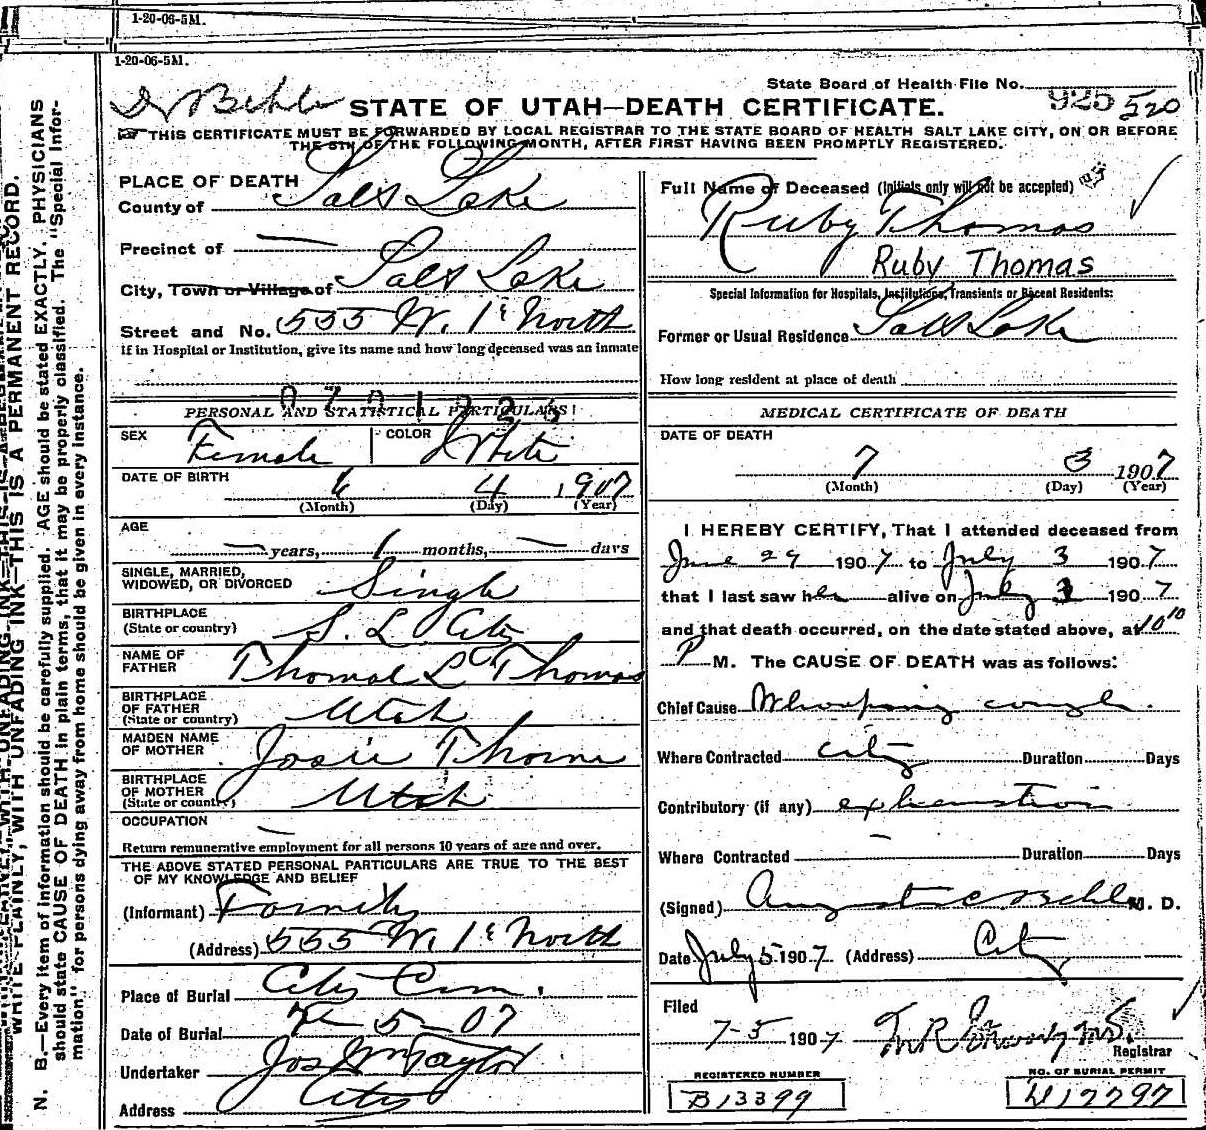 1-20-06-5M.
1-20-06-5M.
State Board of Health File No. 925 520
Dr Behle STATE OF UTAH—DEATH CERTIFICATE.
THIS CERTIFICATE MUST BE FORWARDED BY LOCAL REGISTRAR TO THE STATE BOARD OF HEALTH SALT LAKE CITY, ON OR BEFORE
THE 5TH OF THE FOLLOWING MONTH, AFTER FIRST HAVING BEEN PROMPTLY REGISTERED.
WRITE PLAINLY, WITH UNFADING INK—THIS IS A PERMANENT RECORD.
N. B.—Every item of information should be carefully supplied. AGE should be stated EXACTLY. PHYSICIANS
should state CAUSE OF DEATH in plain terms, that it may be properly classified. The "Special Infor-
mation" for persons dying away from home should be given in every instance.
PLACE OF DEATH
County of Salt Lake
Precinct of —
City, Town or Village of Salt Lake
Street and No. 555 W. 1st North
If in Hospital or Institution, give its name and how long deceased was an inmate
PERSONAL AND STATISTICAL PARTICULARS
SEX Female COLOR White
DATE OF BIRTH 6 4 1907
(Month) (Day) (Year)
AGE
— years, 1 months, — days
SINGLE, MARRIED,
WIDOWED, OR DIVORCED Single
BIRTHPLACE
(State or country) S. L. City
NAME OF
FATHER Thomas L Thomas
BIRTHPLACE
OF FATHER
(State or country) Utah
MAIDEN NAME
OF MOTHER Josie Thorne
BIRTHPLACE
OF MOTHER
(State or country) Utah
OCCUPATION —
Return remunerative employment for all persons 10 years of age and over.
THE ABOVE STATED PERSONAL PARTICULARS ARE TRUE TO THE BEST
OF MY KNOWLEDGE AND BELIEF
(Informant) Family
(Address) 555 W. 1st North
Place of Burial City Cem.
Date of Burial 7-5-07
Undertaker Jos Wm Taylor
Address City
Full Name of Deceased (Initials only will not be accepted)
Ruby Thomas
Ruby Thomas
Special Information for Hospitals, Institutions, Transients or Recent Residents:
Former or Usual Residence Salt Lake
How long resident at place of death
MEDICAL CERTIFICATE OF DEATH
DATE OF DEATH
7 3 1907
(Month) (Day) (Year)
I HEREBY CERTIFY, That I attended deceased from
June 29 1907 to July 3 1907
that I last saw her alive on July 3 1907
and that death occurred, on the date stated above, at 10 10
P M. The CAUSE OF DEATH was as follows:
Chief Cause Whooping cough.
Where Contracted City Duration Days
Contributory (if any) exhaustion
Where Contracted — Duration Days
(Signed) August C Behle M. D.
Date July 5 1907 (Address) City
Filed
7-5 1907
Registrar
REGISTERED NUMBER
B13399
NO. OF BURIAL PERMIT
W17797